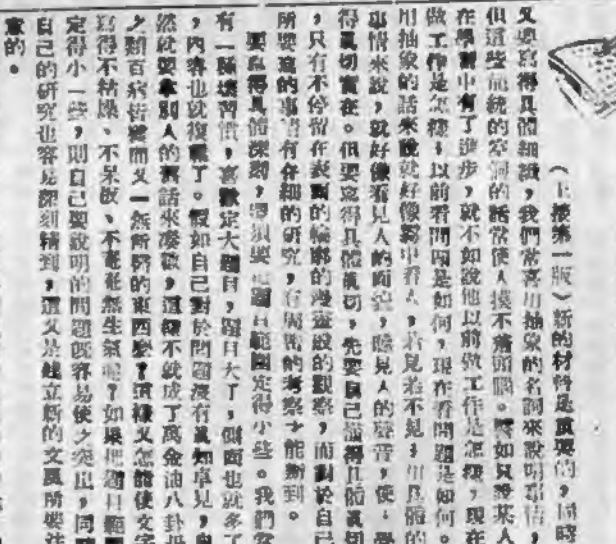 （上接第一版）新的材料是重要的，同時
又要寫得具體細緻，我們常喜用抽象的名詞來說明事情，
但這些籠統的空洞的話常使人摸不着頭腦。譬如只說某人
在學習中有了進步，就不如說他以前做工作是怎樣，現在
做工作是怎樣；以前看問題是如何，現在看問題是如何。
用抽象的話來說就好像霧中看人，若見若不見；用具體的
事情來說，就好像看見人的面貌，聽見人的聲音，使
得真切實在。但要寫得具體真切，先要自己懂得具體真切
，只有不停留在表面的輪廓的觀察，而對於自己
所要寫的事情有仔細的研究，有周密的考察才能辦到。
要寫得具體深刻，還須要把題目範圍定得小些。我們常
有一種壞習慣，喜歡定大題目，題目大了，側面也就多了
，內容也就複雜了。假如自己對於問題沒有真知卓見，
然就要拿別人的舊話來湊數，這樣不就成了萬金油八卦丹
之類百病皆醫而又一無所醫的東西麼？這樣又怎能使文字
寫得不枯燥、不呆板、不毫無生氣呢？如果把題目範圍
定得小一些，則自己要說明的問題既容易使之突出，同時
自己的研究也容易深刻精到，這又是建立新的文風所要注
意的。